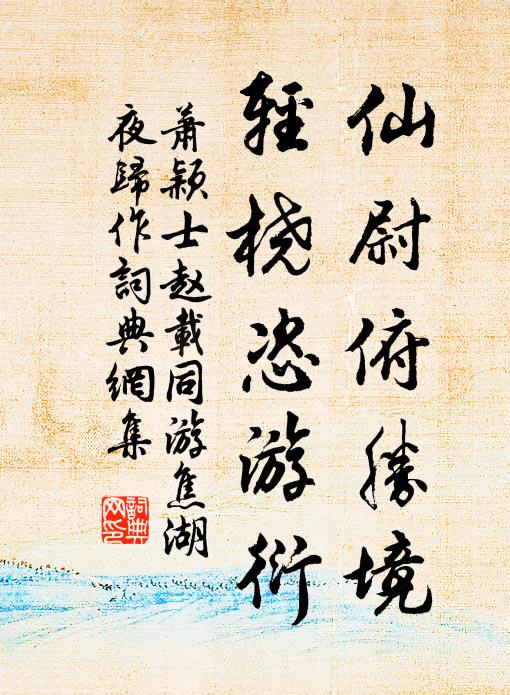 仙尉俯勝境
輕橈恣游衍
蕭颖士赵載同游焦湖
夜歸作詞典網集
詞典
网印